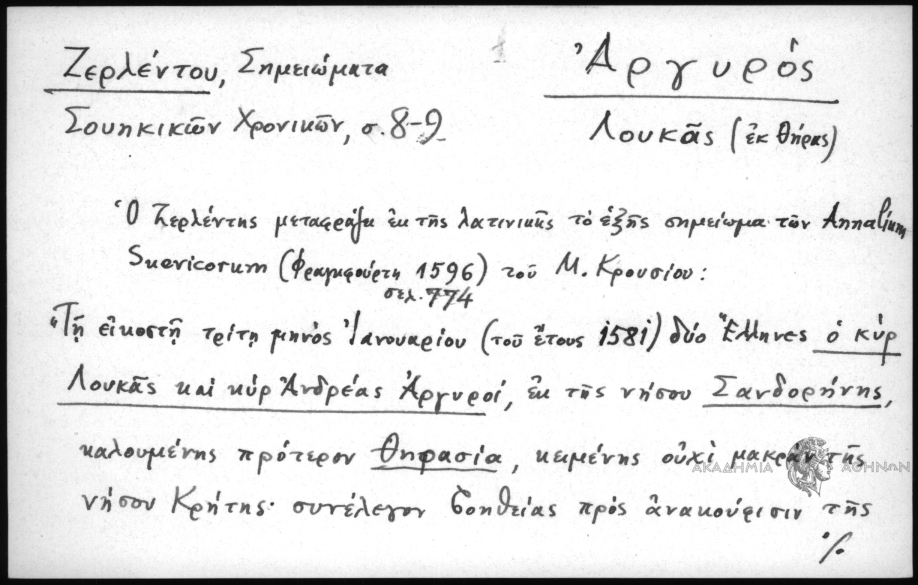 Ζερλέντου, Σημειώματα
Σουηκικῶν Χρονικῶν, σ. 8-9
1
Ἀργυρός
Λουκᾶς (ἐκ Θήρας)
Ὁ Ζερλέντης μεταφράζει ἐκ τῆς λατινικῆς τὸ ἑξῆς σημείωμα τῶν Annalium
Suevicorum (Φραγκφούρτη 1596) τοῦ Μ. Κρουσίου:
σελ. 774
"Τῇ εἰκοστῇ τρίτῃ μηνὸς Ἰανουαρίου (τοῦ ἔτους 1581) δύο Ἕλληνες ὁ κὺρ
Λουκᾶς καὶ κὺρ Ἀνδρέας Ἀργυροί, ἐκ τῆς νήσου Σανδορήνης,
καλουμένης πρότερον Θηρασία, κειμένης οὐχὶ μακρὰν τῆς
νήσου Κρήτης· συνέλεγον βοηθείας πρὸς ἀνακούφισιν τῆς
./.
ΑΚΑΔΗΜΙΑ ΑΘΗΝΩΝ